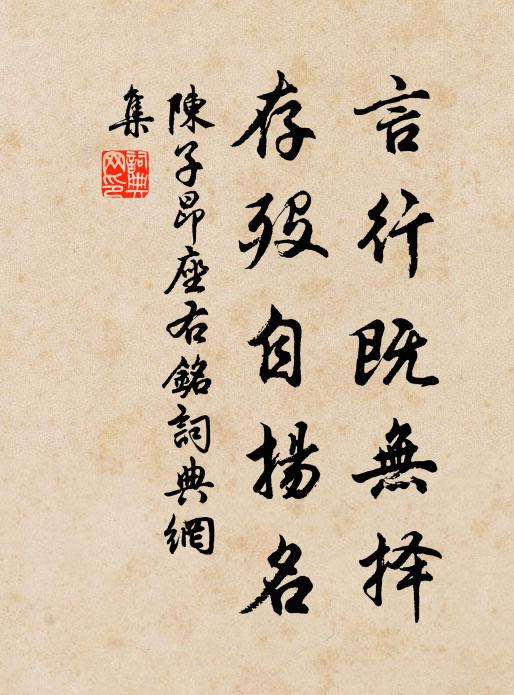 言行既無择
存殁自揚名
陳子昂座右銘詞典網
集
詞典網印